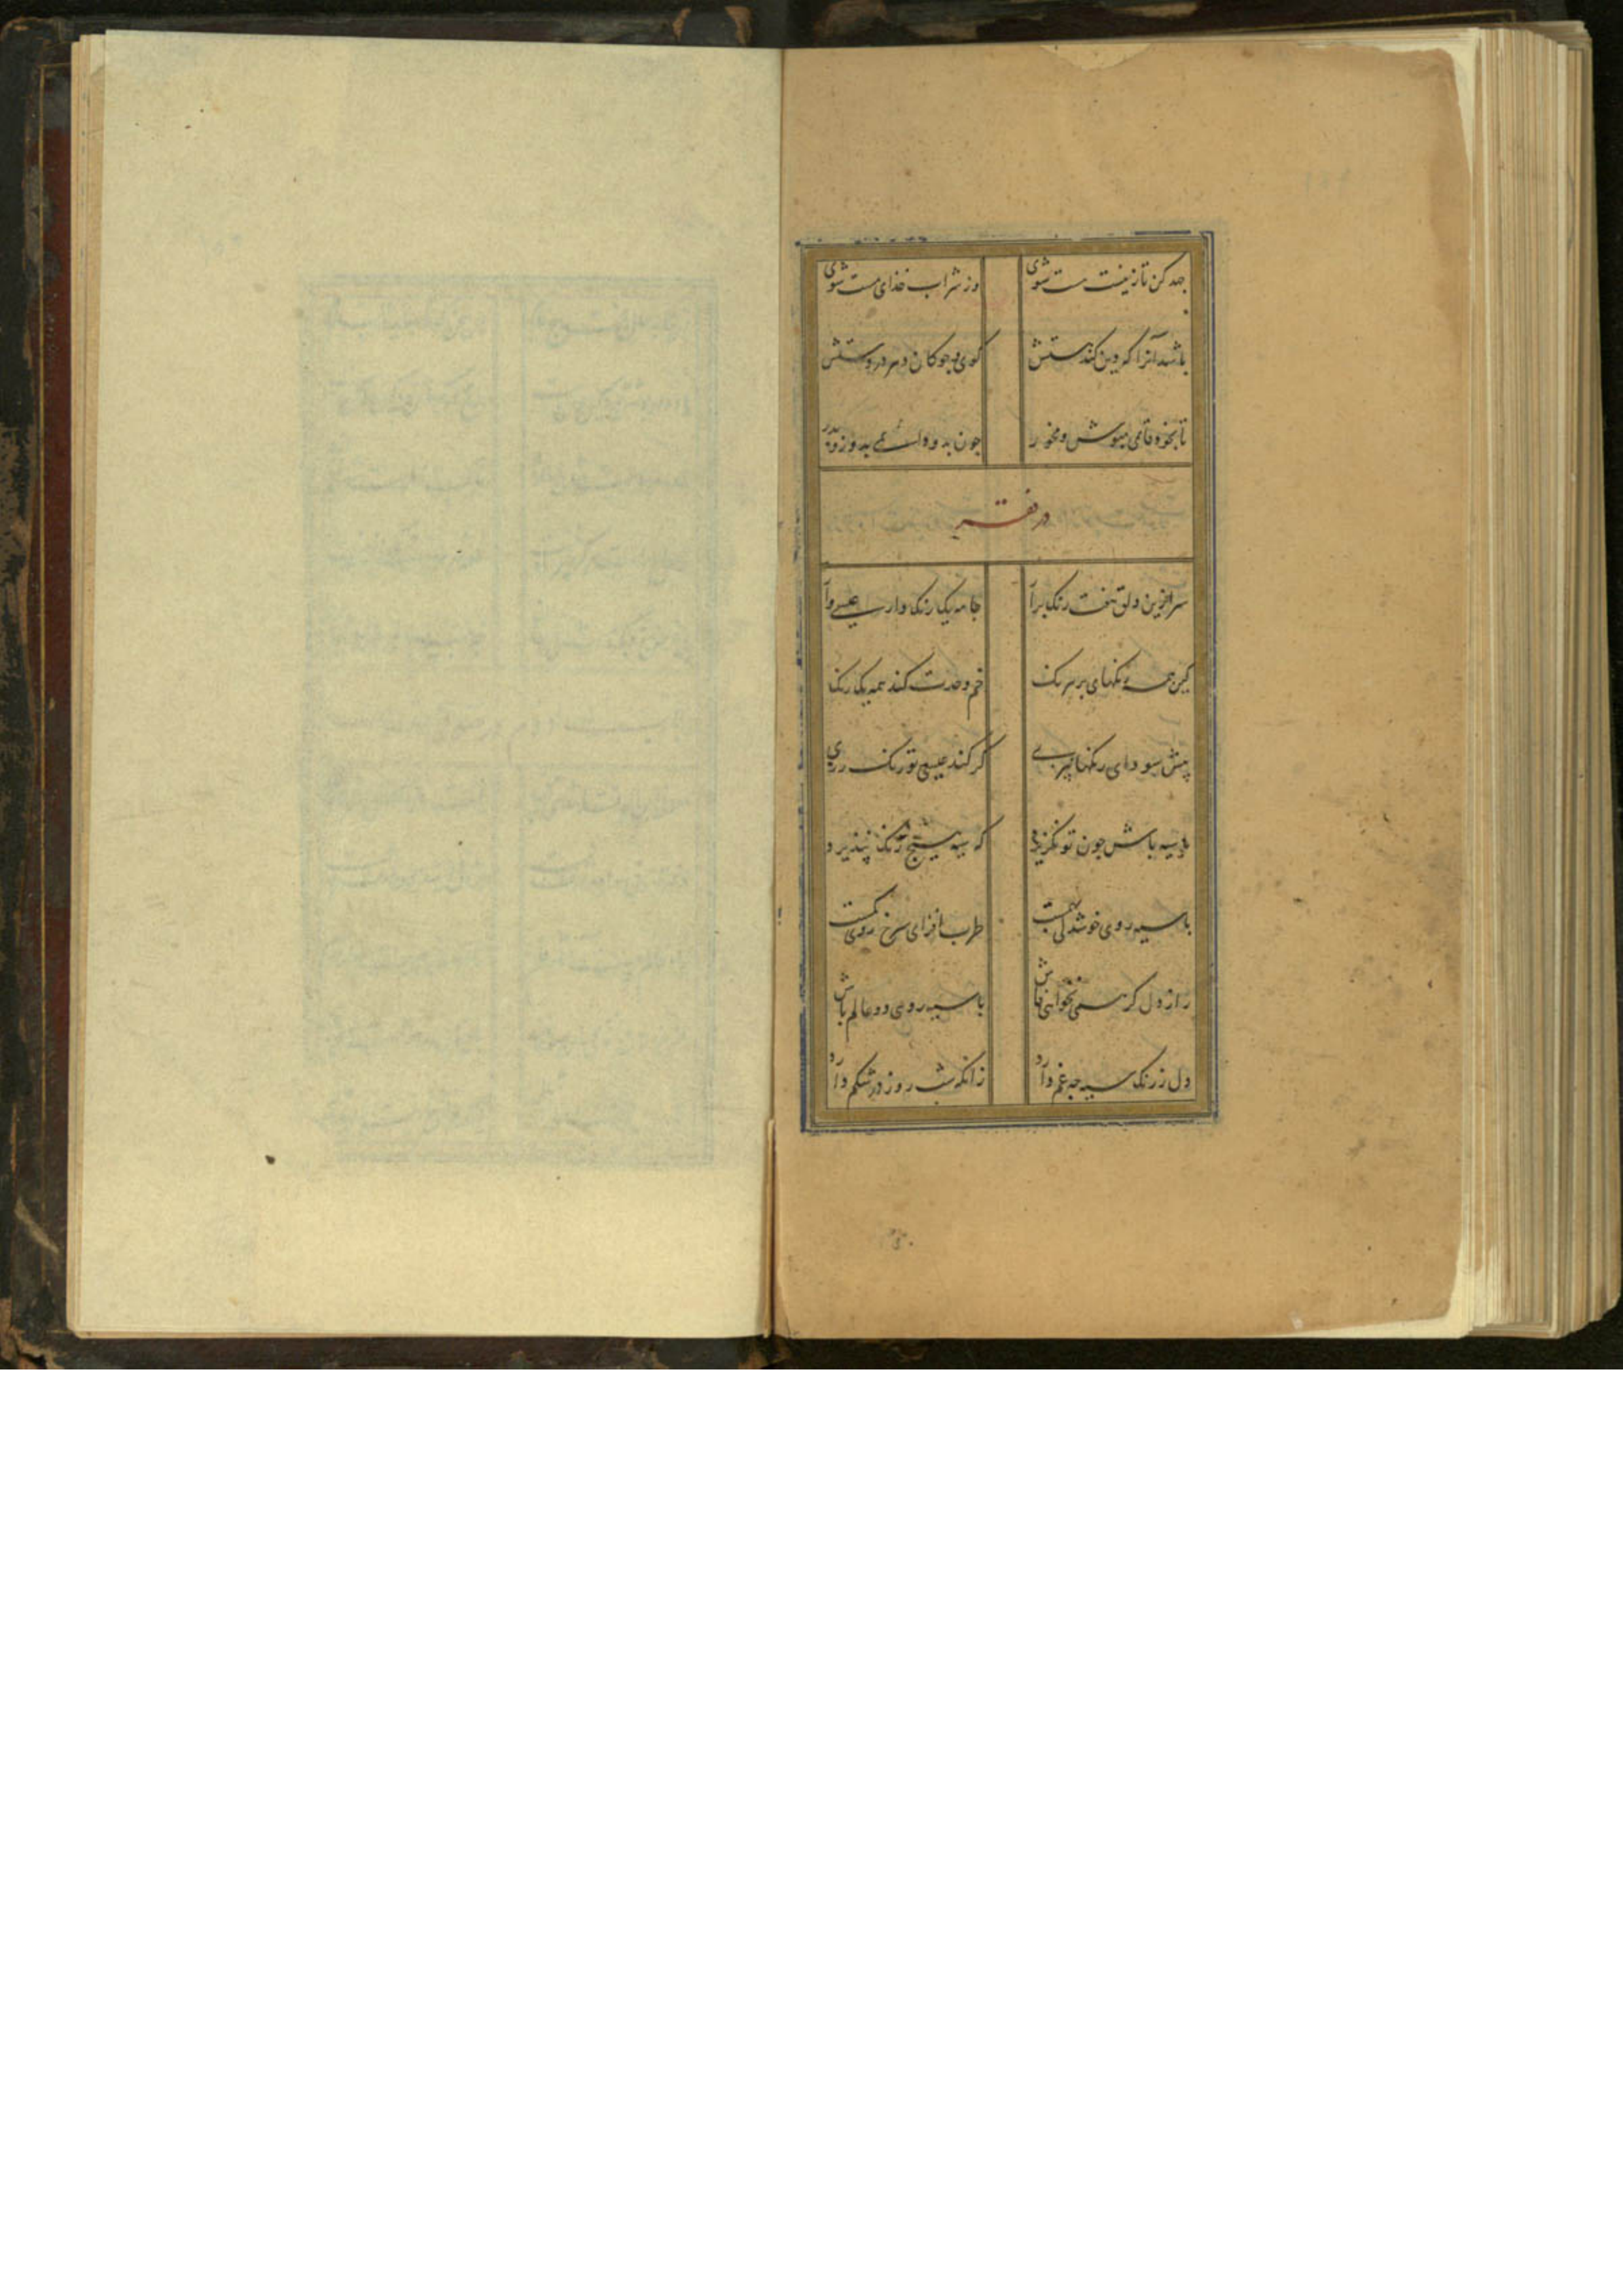 جهد کن تا ز نیست هست شوی وز شراب خدای مست شوی
باشد آنرا که دین کند هستش کوی و جوکان دهر در دستش
جون بدو
در فقر
سر ازین دلق هفت رنک برآر جامه یک رنک دار عیسی وار
کین همه رنکهای پر نیرنک خم وحدت کند همه یک رنک
پیش سودای رنکها نپزی کر کند عیسی تو رنک رزی
سیه باش جون تو نکزیرد که سیه هیج رنک نپذیرد
با سیه روی خوشدلی بهمست طرب افزای سرخ روی کمست
راز دل کر همی نخواهی فاش با سیه روی دو عالم باش
دل ز رنک سیه جه غم دارد زانکه شب روز در شکم دارد